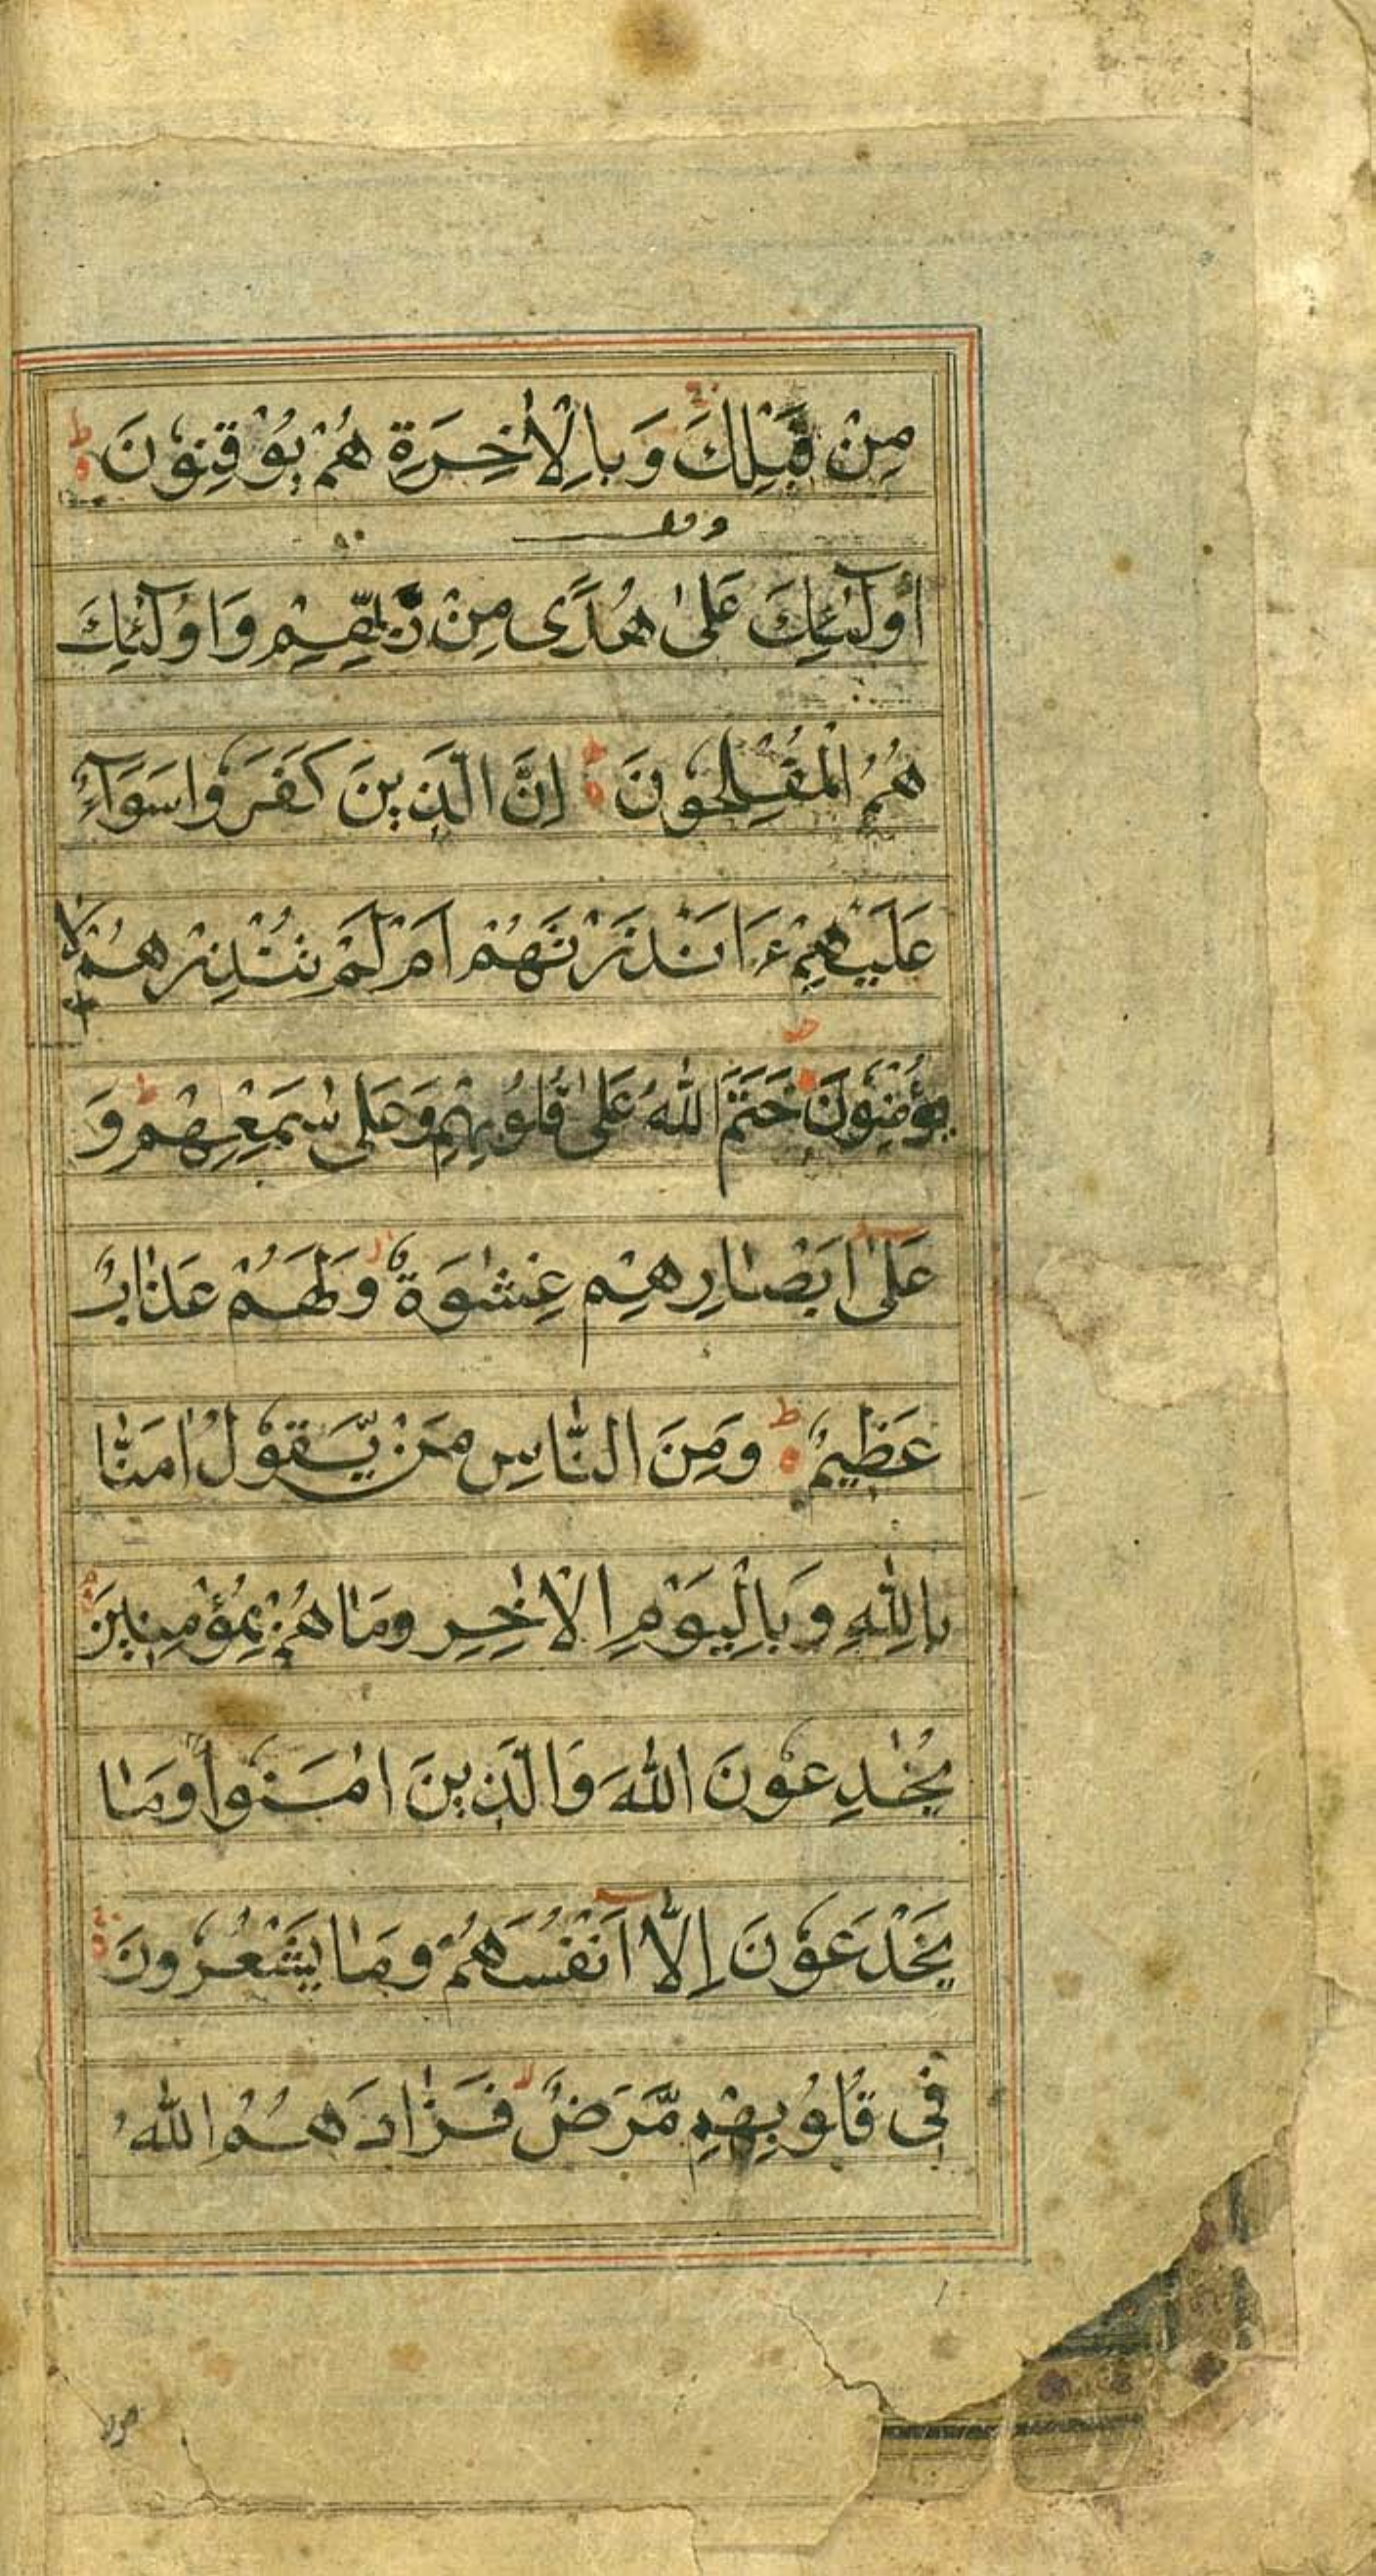 مِنْ قَبْلِكَ وَبِالْاٰخِرَةِ هُمْ يُوْقِنُوْنَ ط
وقف
اُولٰٓئِكَ عَلٰى هُدًى مِنْ رَبِّهِمْ وَاُولٰٓئِكَ
هُمُ الْمُفْلِحُوْنَ ط اِنَّ الَّذِيْنَ كَفَرُوْا سَوَآءٌ
عَلَيْهِمْ ءَاَنْذَرْتَهُمْ اَمْ لَمْ تُنْذِرْهُمْ لَا
يُؤْمِنُوْنَ خَتَمَ اللّٰهُ عَلٰى قُلُوْبِهِمْ وَعَلٰى سَمْعِهِمْ ط وَ
عَلٰٓى اَبْصَارِهِمْ غِشٰوَةٌ وَلَهُمْ عَذَابٌ
عَظِيْمٌ ط وَمِنَ النَّاسِ مَنْ يَّقُوْلُ اٰمَنَّا
بِاللّٰهِ وَبِالْيَوْمِ الْاٰخِرِ وَمَا هُمْ بِمُؤْمِنِيْنَ
يُخٰدِعُوْنَ اللّٰهَ وَالَّذِيْنَ اٰمَنُوْا وَمَا
يَخْدَعُوْنَ اِلَّآ اَنْفُسَهُمْ وَمَا يَشْعُرُوْنَ
فِيْ قُلُوْبِهِمْ مَّرَضٌ فَزَادَهُمُ اللّٰهُ